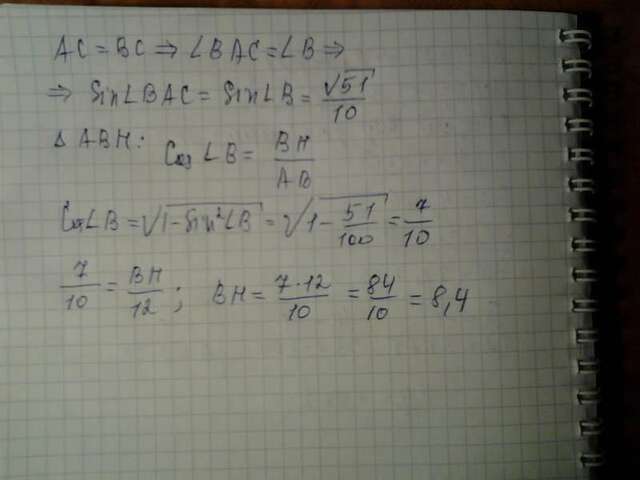 AC = BC ⇒ ∠BAC = ∠B ⇒
⇒ Sin∠BAC = Sin∠B = √51/10
Δ ABH: Cos ∠B = BH/AB
Cos∠B = √(1-Sin²∠B) = √(1-51/100) = 7/10
7/10 = BH/12; BH = 7·12/10 = 84/10 = 8,4